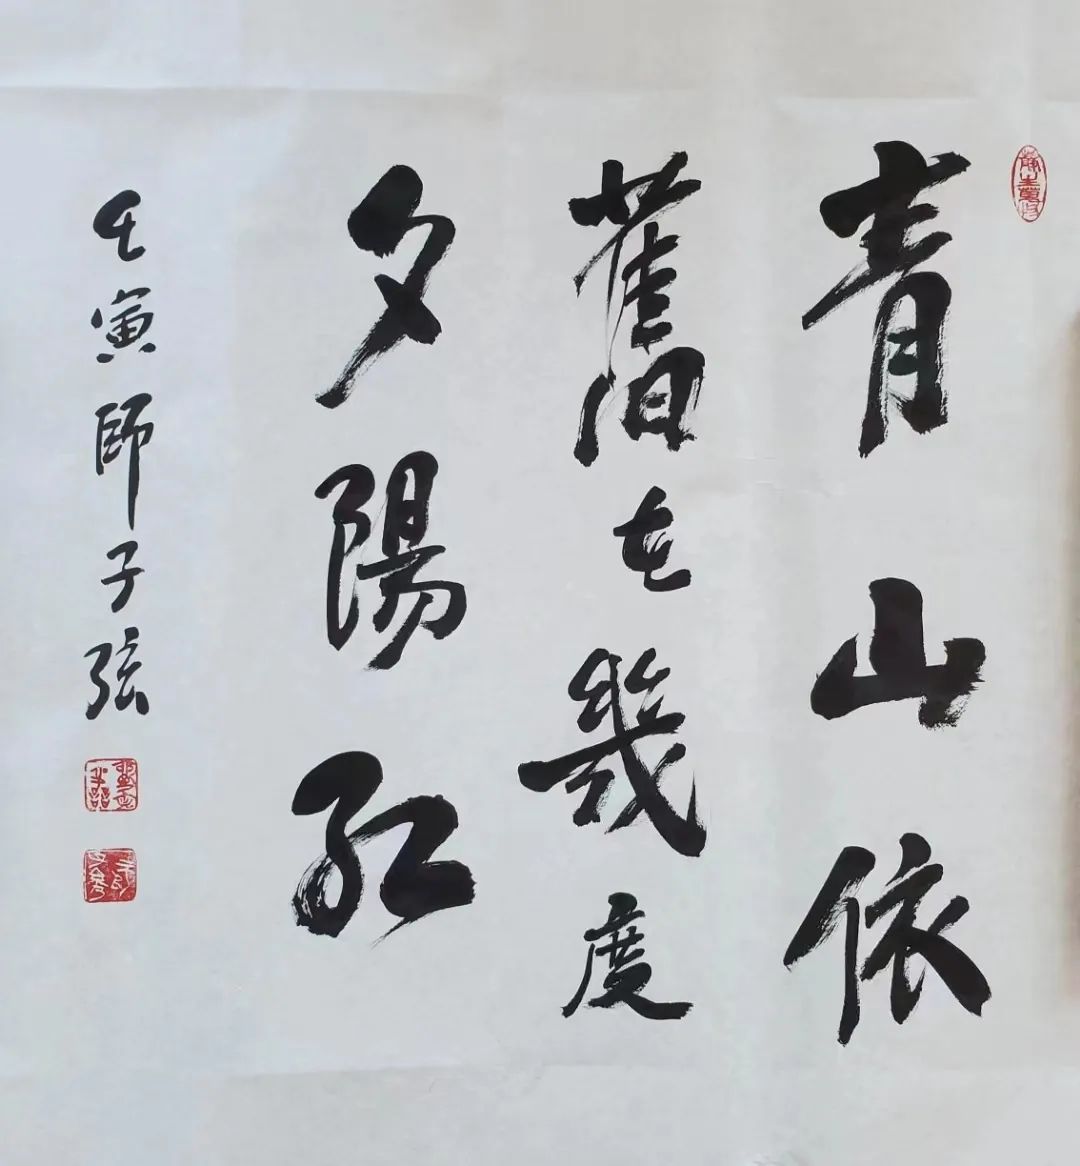 青山依
舊在幾度
夕陽紅
壬寅師子弦